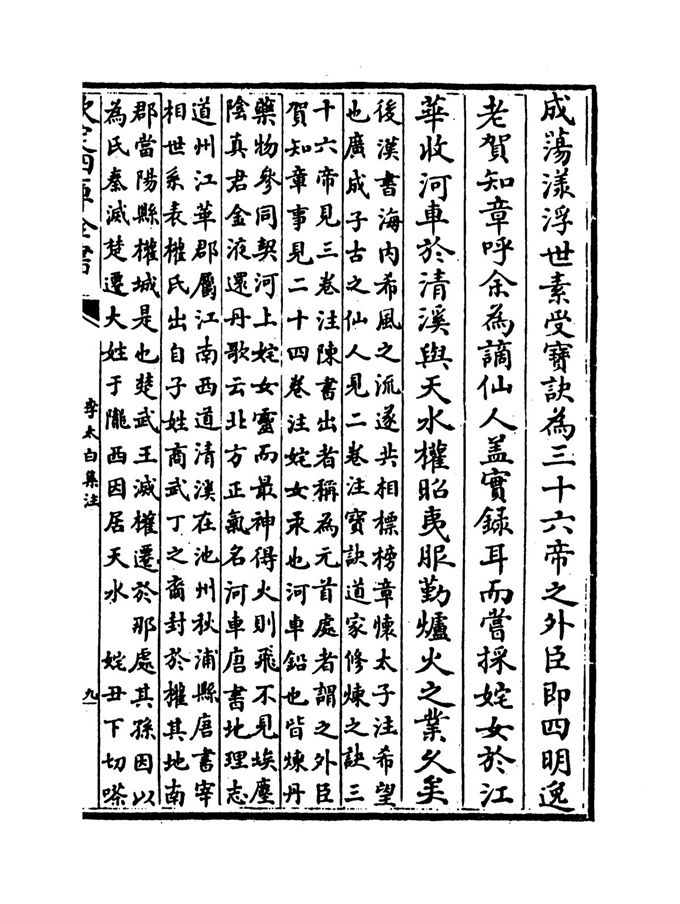 成蕩漾浮世素受寳訣為三十六帝之外臣即四明逸
老賀知章呼余為謫仙人盖實録耳而嘗採姹女於江
華收河車於清溪與天水權昭夷服勤爐火之業久矣
後漢書海内希風之流遂共相標榜章懷太子注希望
也廣成子古之仙人見二卷注寳訣道家修煉之訣三
十六帝見三卷注陳書出者稱為元首處者謂之外臣
賀知章事見二十四卷注姹女汞也河車鉛也皆煉丹
藥物參同契河上姹女靈而最神得火則飛不見埃塵
陰真君金液還丹歌云北方正氣名河車唐書地理志
道州江華郡屬江南西道清溪在池州秋浦縣唐書宰
相世系表權氏出自子姓商武丁之裔封於權其地南
郡當陽縣權城是也楚武王滅權遷於那處其孫因以
為氏秦滅楚遷大姓于隴西因居天水 姹丑下切嗏
欽定四庫全書
李太白集注
九